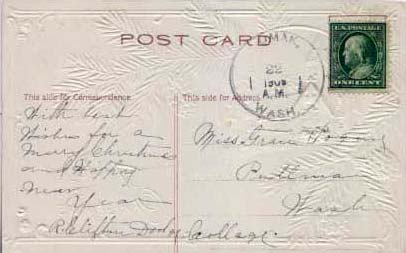 POST CARD
OMAK,
22
A.M.
WASH.
U.S. POSTAGE
ONE CENT
This side for Correspondence.
With best
Wishes for a
Merry Christmas
and Happy
New
Year
R. Clifton Dodge
This side for Address
Miss Grace
Pullman
Wash
College